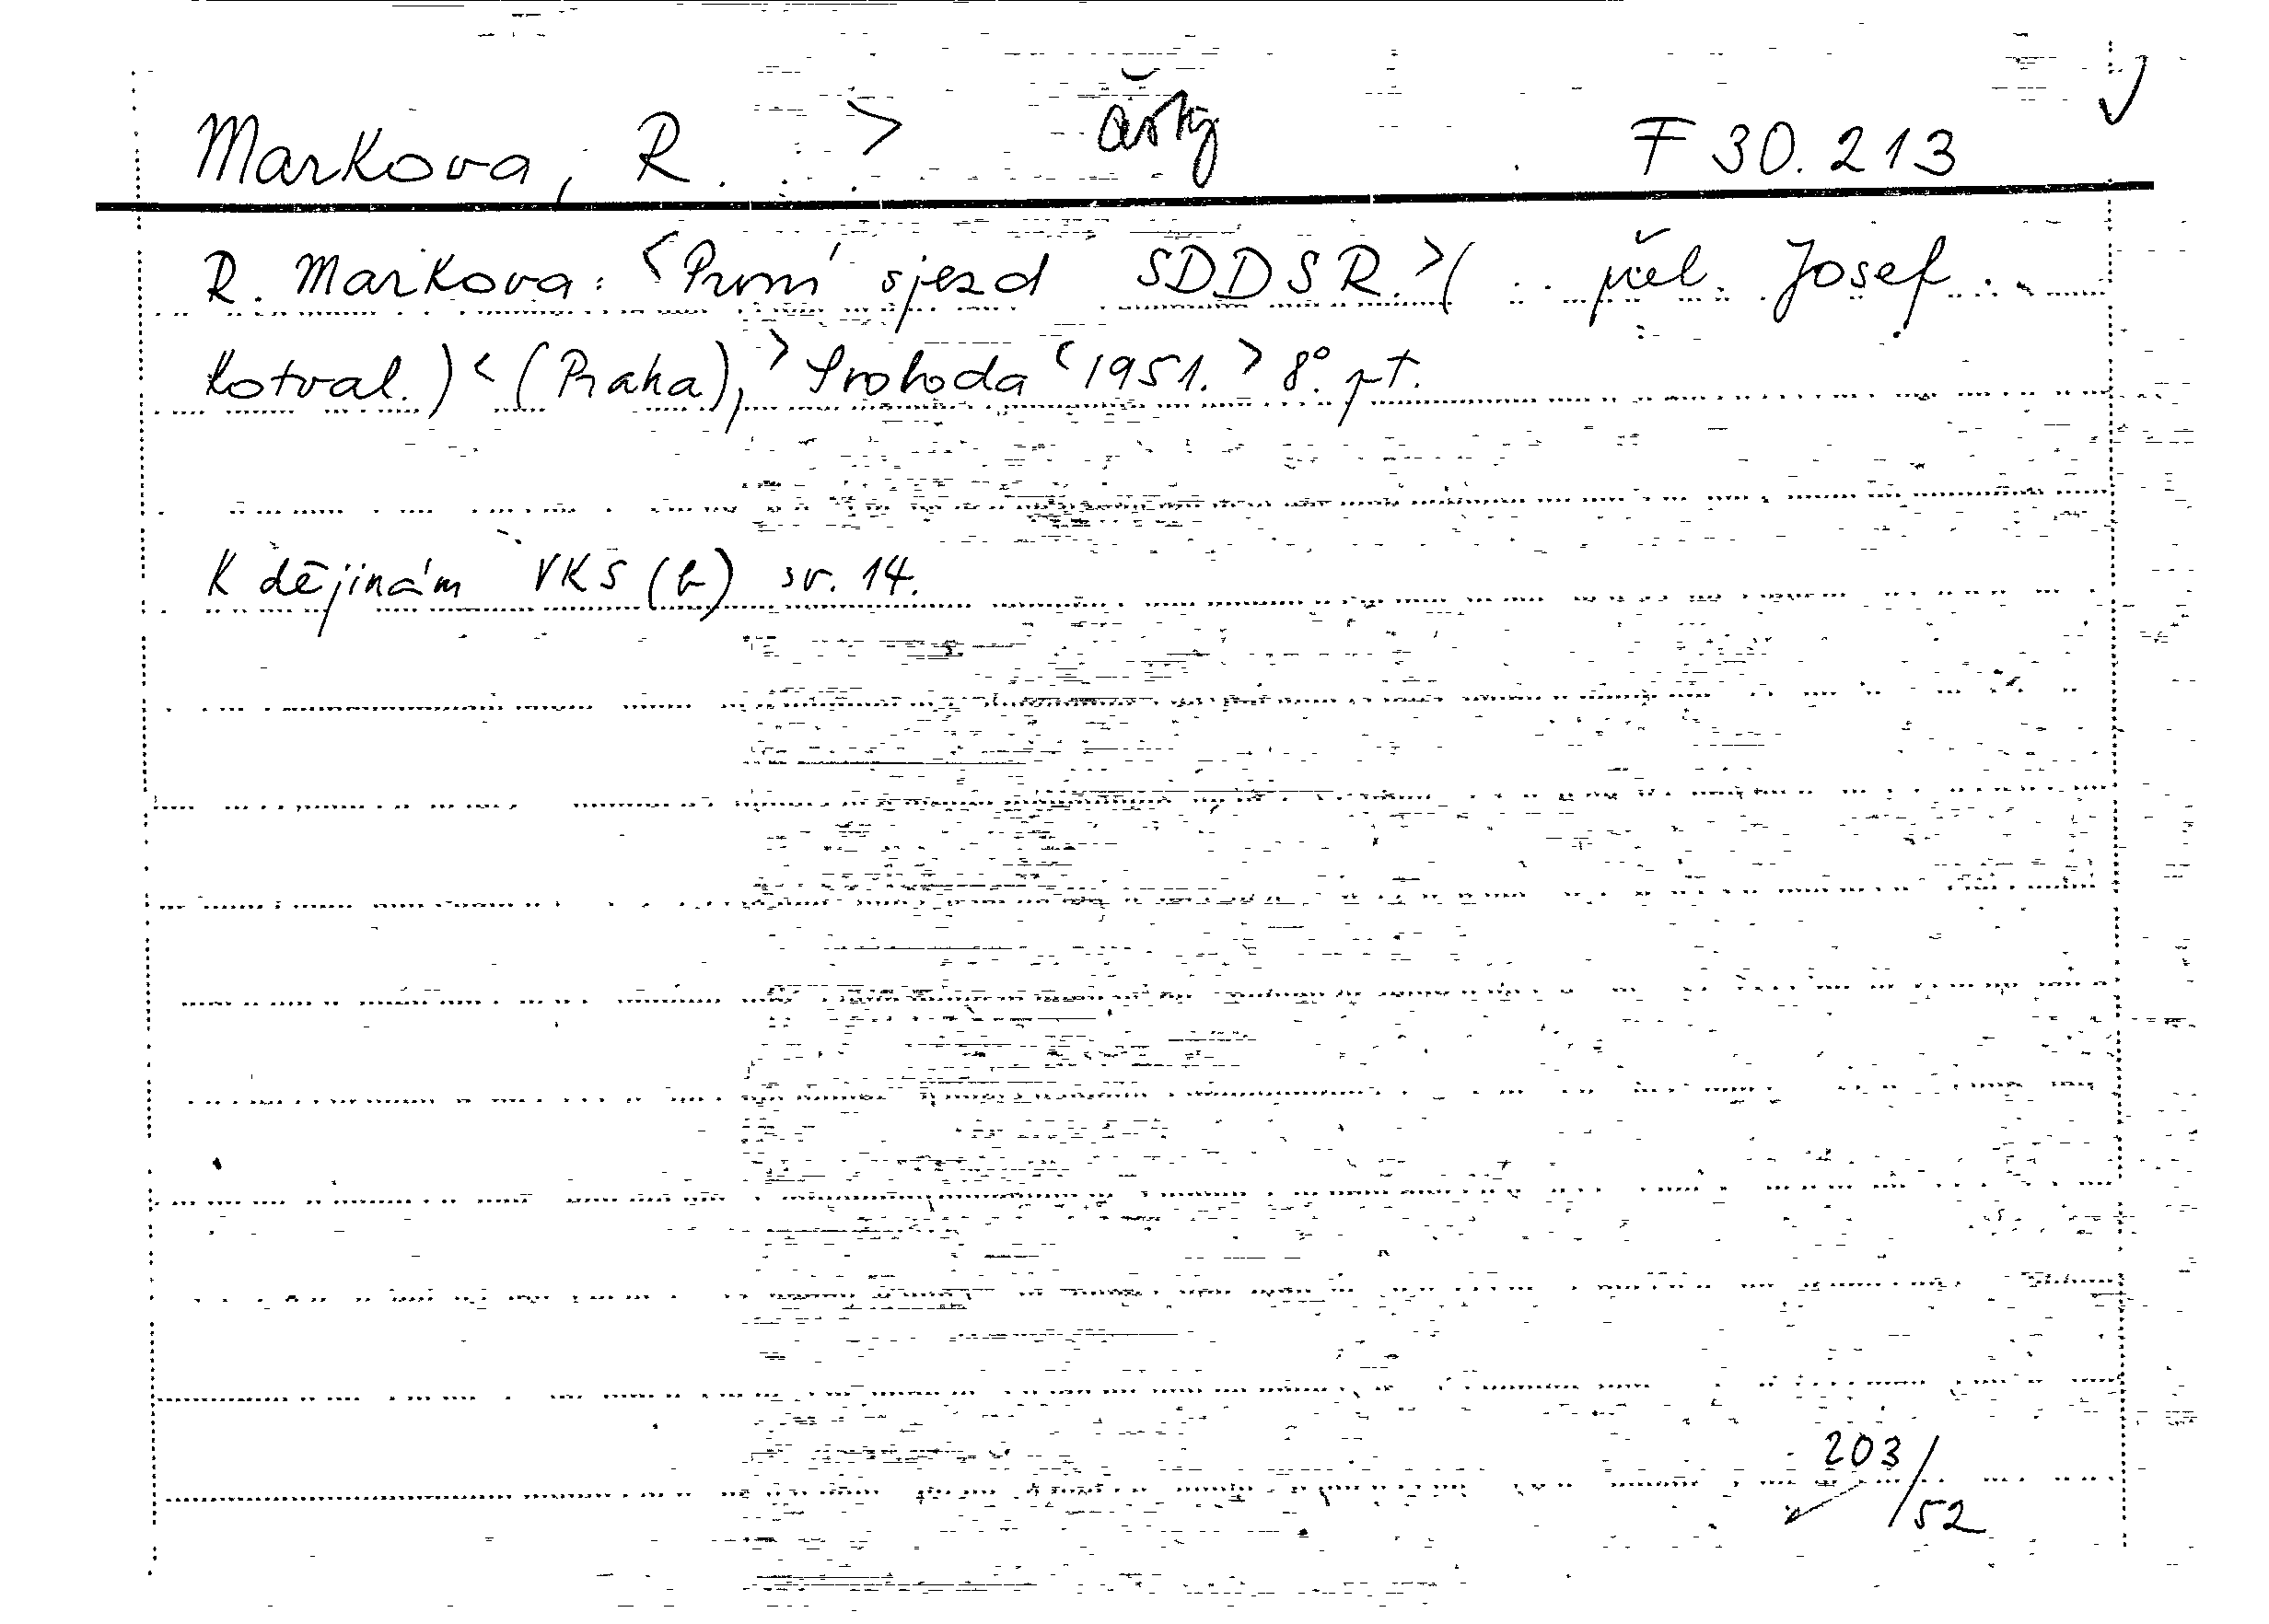 Markova, R. > F 30.213
R. Markova: <První sjezd SDDSR.>( .. přel. Josef
Kotval.) <(Praha),> Svoboda <1951.> 8°. pt.
K dějinám VKS (b) sv. 14.
203/52